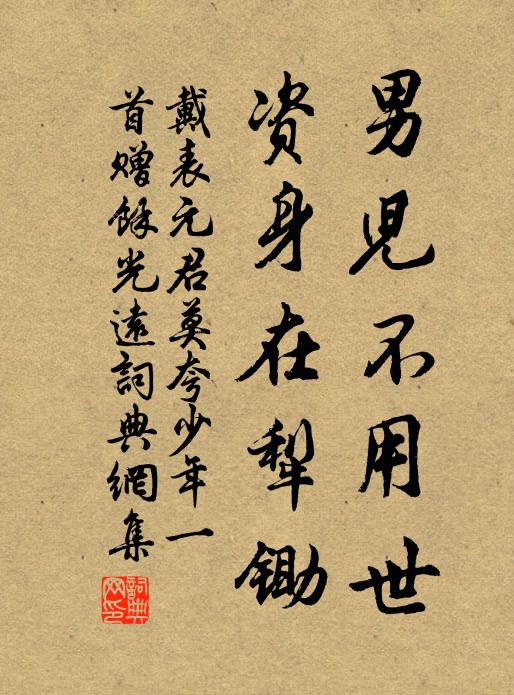 男兒不用世
資身在犁鋤
戴表元君莫夸少年一
首赠餘光遠詞典網集
詞典
网印